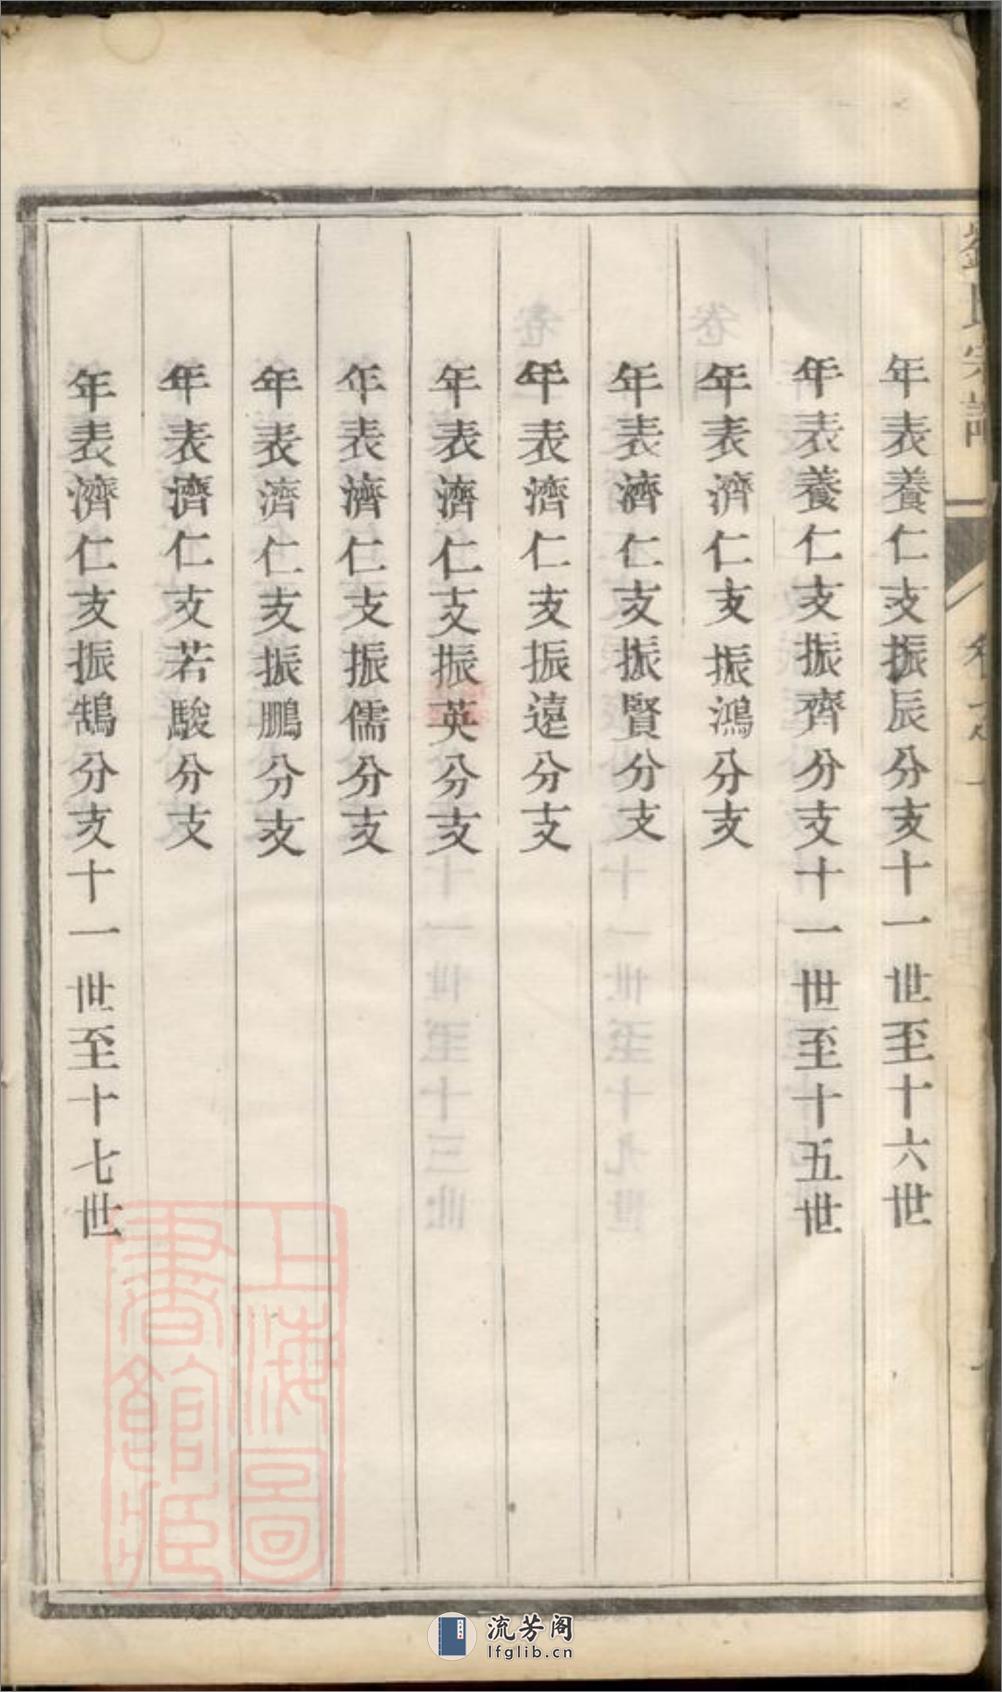 年表養仁支振辰分支十一世至十六世
年表養仁支振齊分支十一世至十五世
年表濟仁支振鴻分支
年表濟仁支振賢分支
年表濟仁支振遠分支
年表濟仁支振英分支
年表濟仁支振儒分支
年表濟仁支振鵬分支
年表濟仁支若駿分支
年表濟仁支振鵠分支十一世至十七世
上海圖
書館藏
流芳阁
lfglib.cn